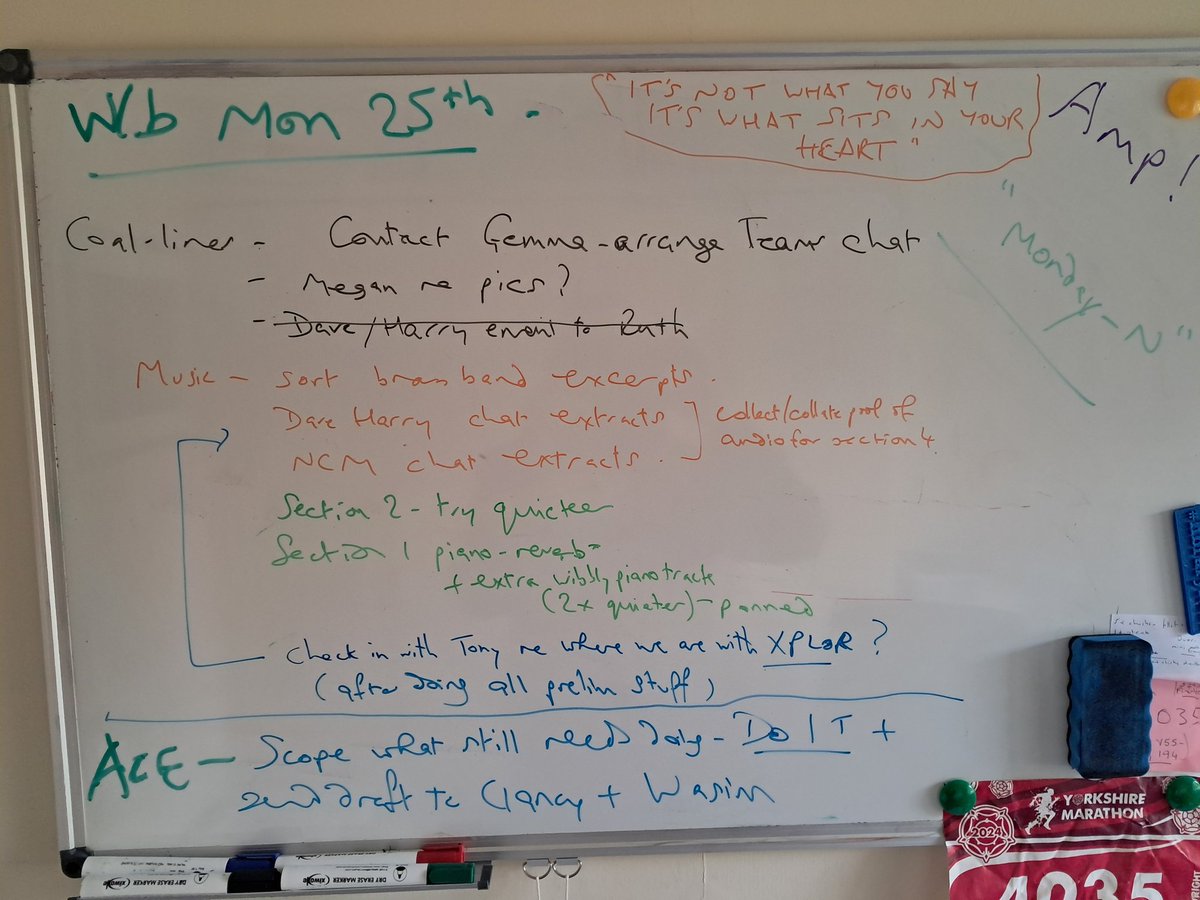 W/b Mon 25th.
"IT'S NOT WHAT YOU SAY
IT'S WHAT SITS IN YOUR
HEART"
Amp!
"Monday-N"
Coal-liner - Contact Gemma - arrange Teams chat
- Megan re pics?
- Dave/Harry event to Ruth
Music - sort brass band excerpts.
Dave Harry chat extracts
NCM chat extracts.
collect/collate pool of
audio for section 4
Section 2 - try quieter
Section 1 piano - reverb
+ extra wibbly piano track
(2x quieter) - panned
Check in with Tony re where we are with XPLOR?
(after doing all prelim stuff)
ACE - Scope what still needs doing - DO IT +
send draft to Clancy + Wasim
2024
YORKSHIRE
MARATHON
4035
DRY ERASE MARKER
DRY ERASE MARKER